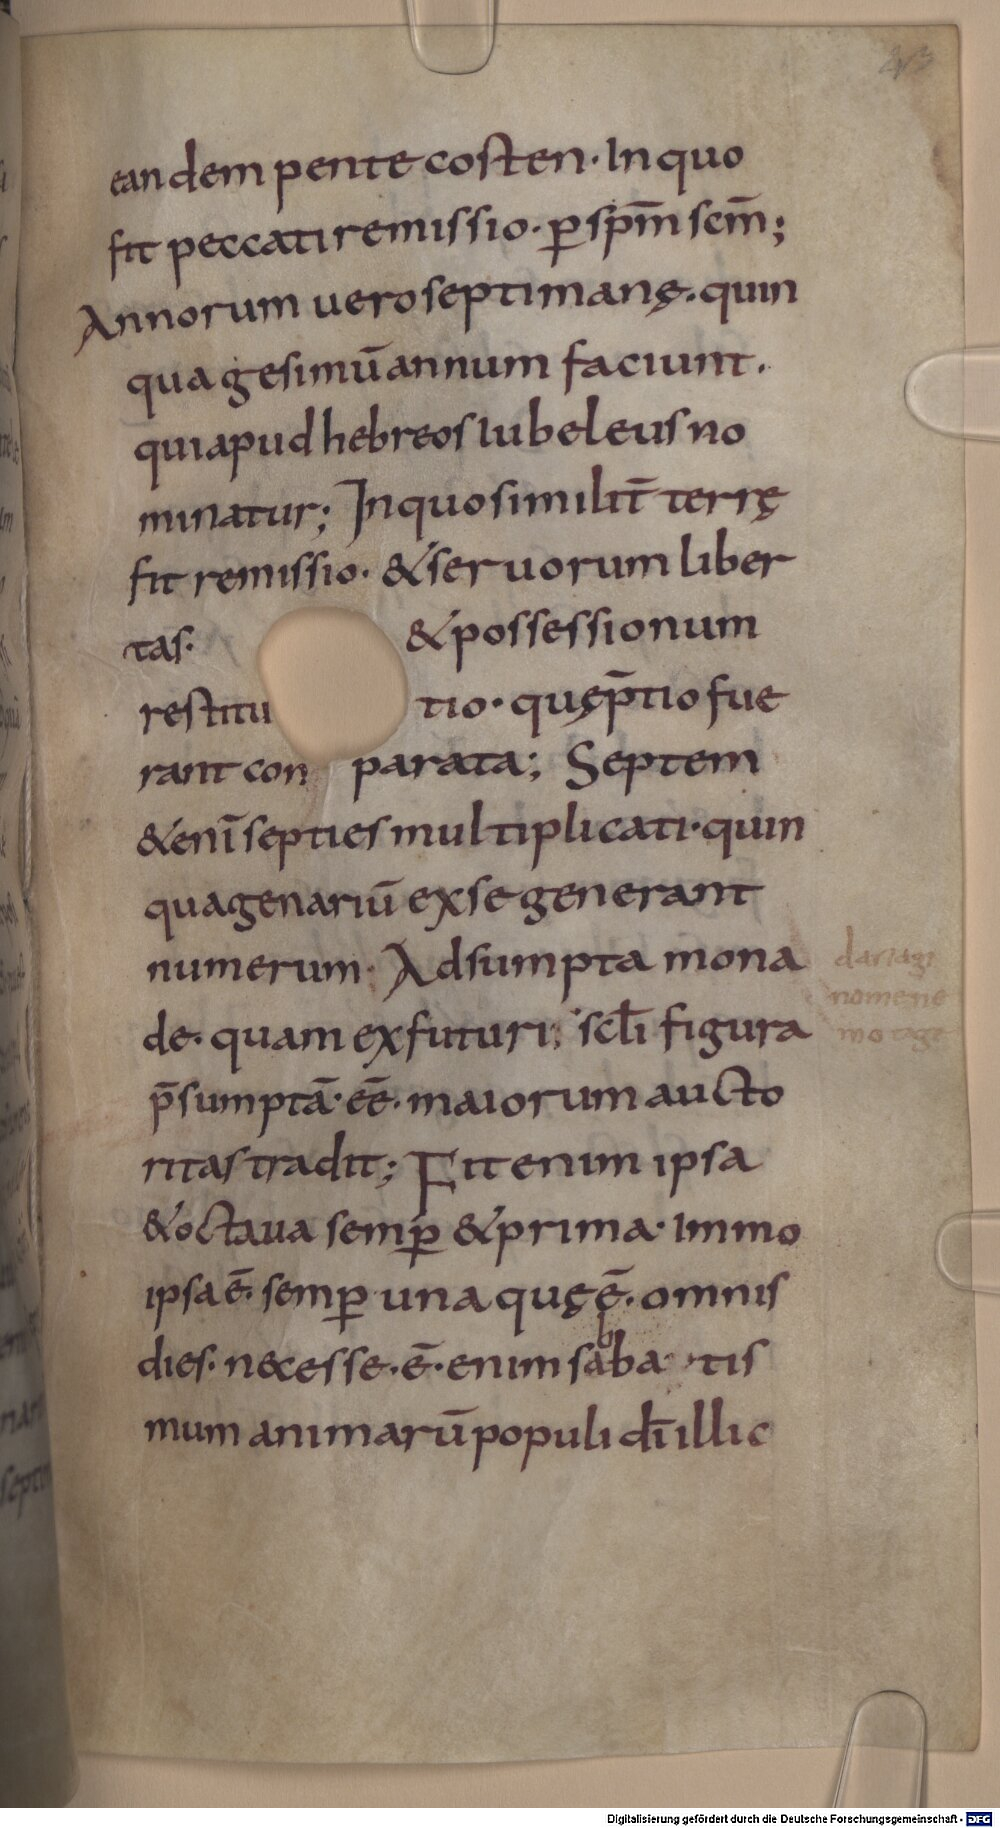 43
eandem pentecosten· In quo
fit peccati remissio· p̄ sp̄m sc̄m;
Annorum uero septimanę· quin
quagesimū annum faciunt.
qui apud hebreos iubeleus no
minatur; In quo similit̄ terrę
fit remissio· & seruorum liber
tas· & possessionum
restitutio· quę p̄tio fue
rant conparata; Septem
& enī septies multiplicati· quin
quagenariū ex se generant
numerum· Adsumpta mona
de· quam ex futuri; scl̄i figura
p̄sumptā· eē· maiorum aucto
ritas tradit; Fit enim ipsa
& octaua semꝑ & prima· immo
ipsa ē· semꝑ una quę ē· omnis
dies· necesse· ē· enim sabbatis
mum animarū populi dī illic
nomene
Digitalisierung gefördert durch die Deutsche Forschungsgemeinschaft - DFG